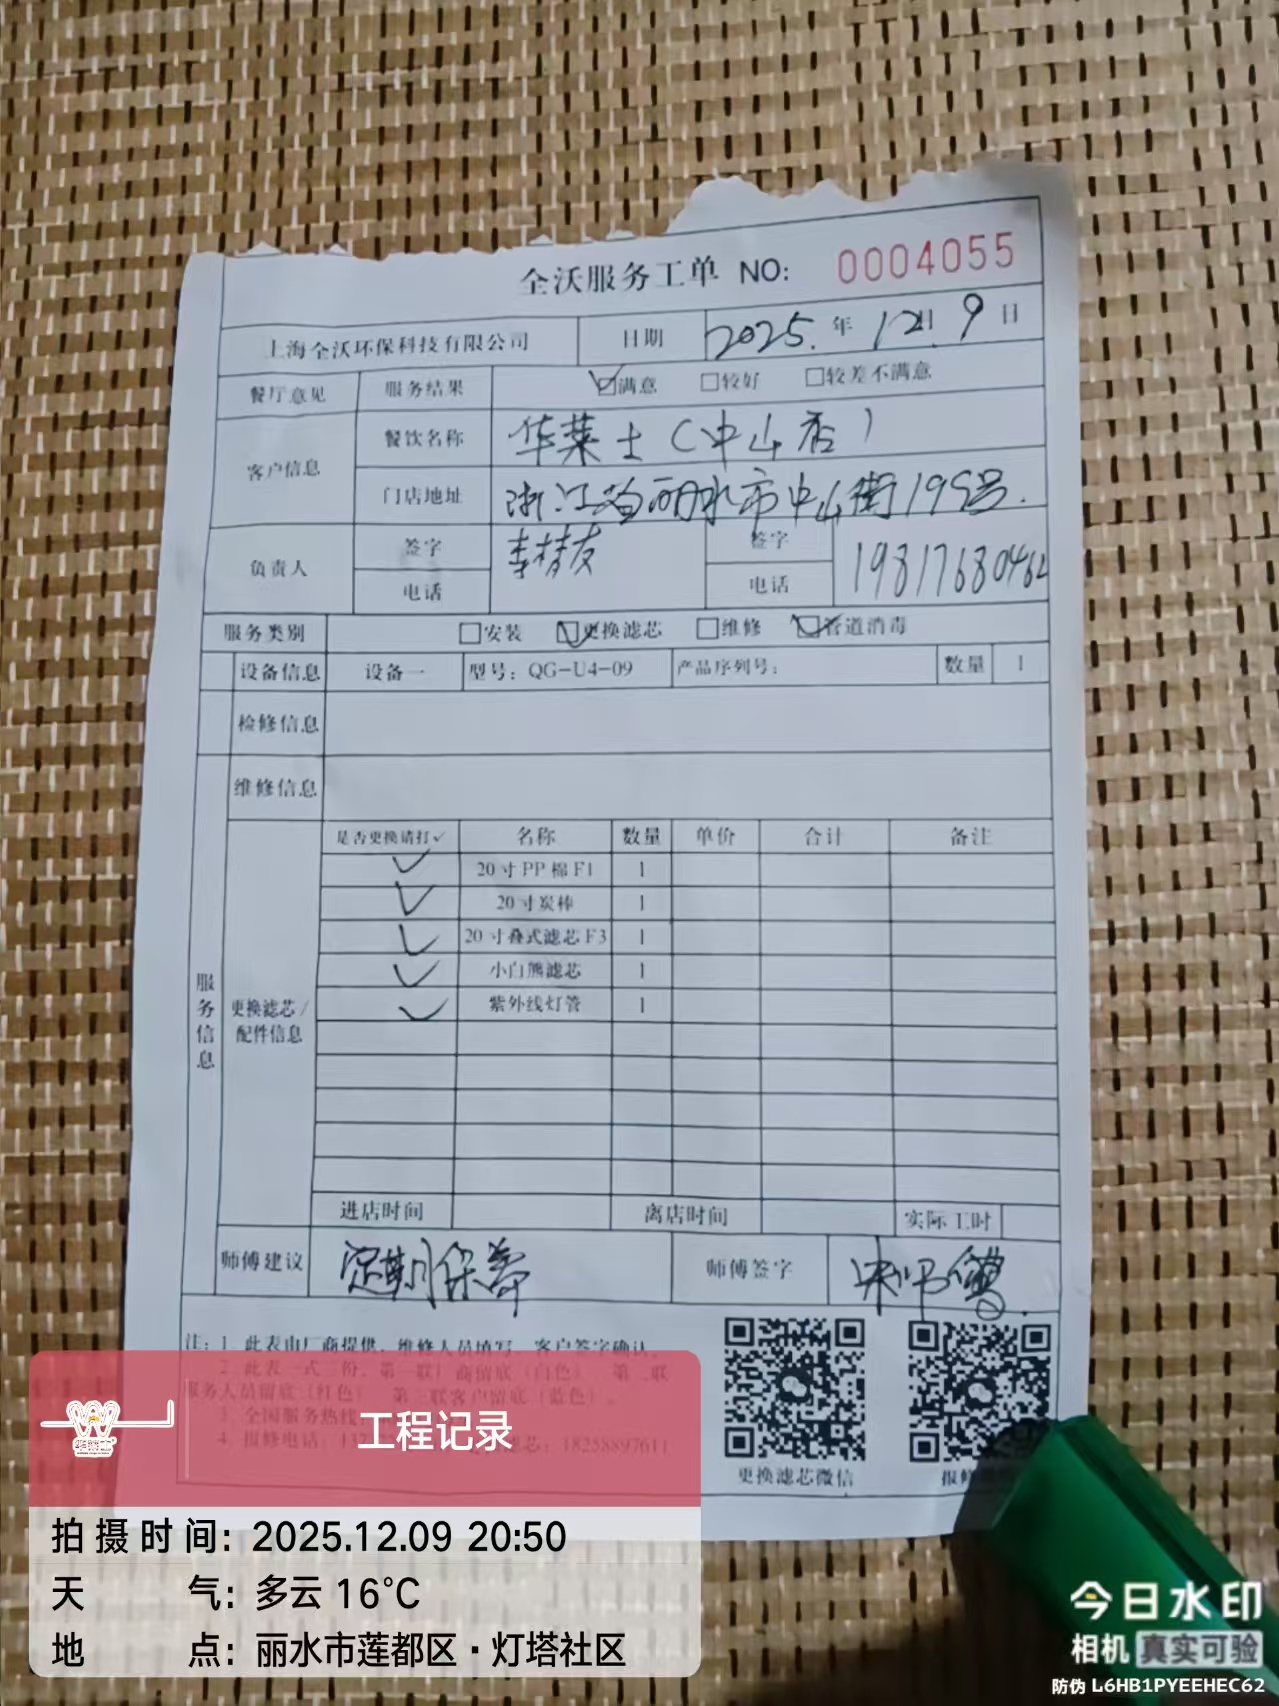 全沃服务工单 NO: 0004055
上海全沃环保科技有限公司 日期 2025.年12月9日
餐厅意见 服务结果 ☑满意 □较好 □较差不满意
客户信息 餐饮名称 华莱士(中山店)
门店地址 浙江省丽水市中山街195号.
负责人 签字 签字
电话 电话 19817680462
服务类别 □安装 ☑更换滤芯 □维修 ☑管道消毒
设备信息 设备一 型号: QG-U4-09 产品序列号: 数量 1
检修信息
维修信息
是否更换请打✓ 名称 数量 单价 合计 备注
✓ 20寸PP棉F1 1
✓ 20寸炭棒 1
✓ 20寸叠式滤芯F3 1
✓ 小白熊滤芯 1
✓ 紫外线灯管 1
服务信息
更换滤芯/
配件信息
进店时间 离店时间 实际工时
师傅建议 定期保养 师傅签字
注: 1. 此表由厂商提供, 维修人员填写, 客户签字确认.
2. 此表一式三份, 第一联厂商留底(白色) 第二联
服务人员留底(红色) 第三联客户留底(蓝色).
3. 全国服务热线
4. 报修电话: 滤芯: 18258897611
更换滤芯微信
工程记录
拍摄时间: 2025.12.09 20:50
天气: 多云 16°C
地点: 丽水市莲都区·灯塔社区
今日水印
相机 真实可验
防伪 L6HB1PYEEHEC62